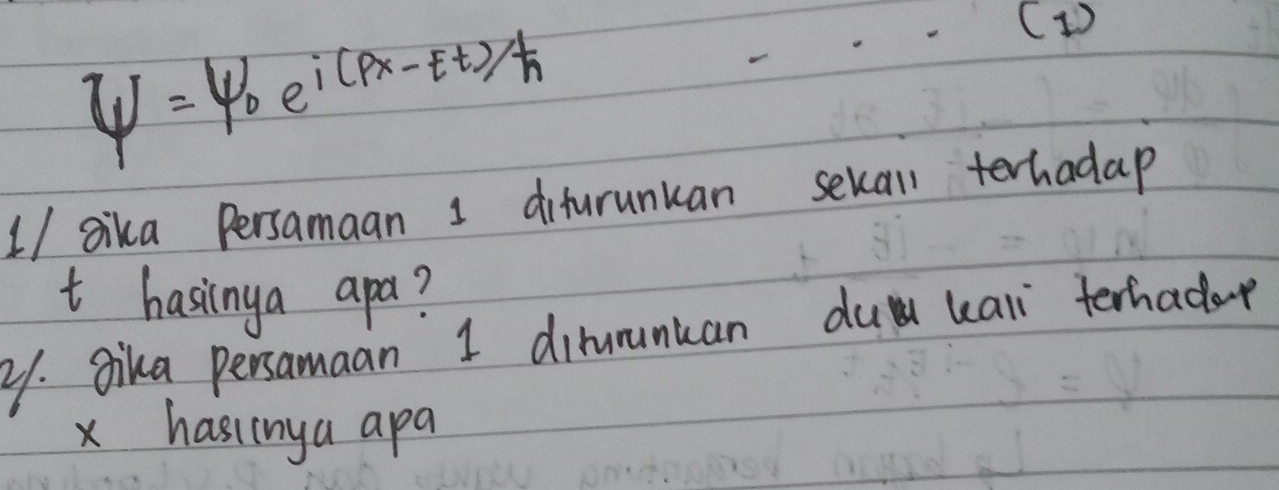 Ψ = Ψ₀ e^{i(Px-Et)/ħ} - . . (1)
1/ Jika Persamaan 1 diturunkan sekali terhadap
t hasilnya apa?
2/. Jika persamaan 1 diturunkan dua kali terhadap
x hasilnya apa